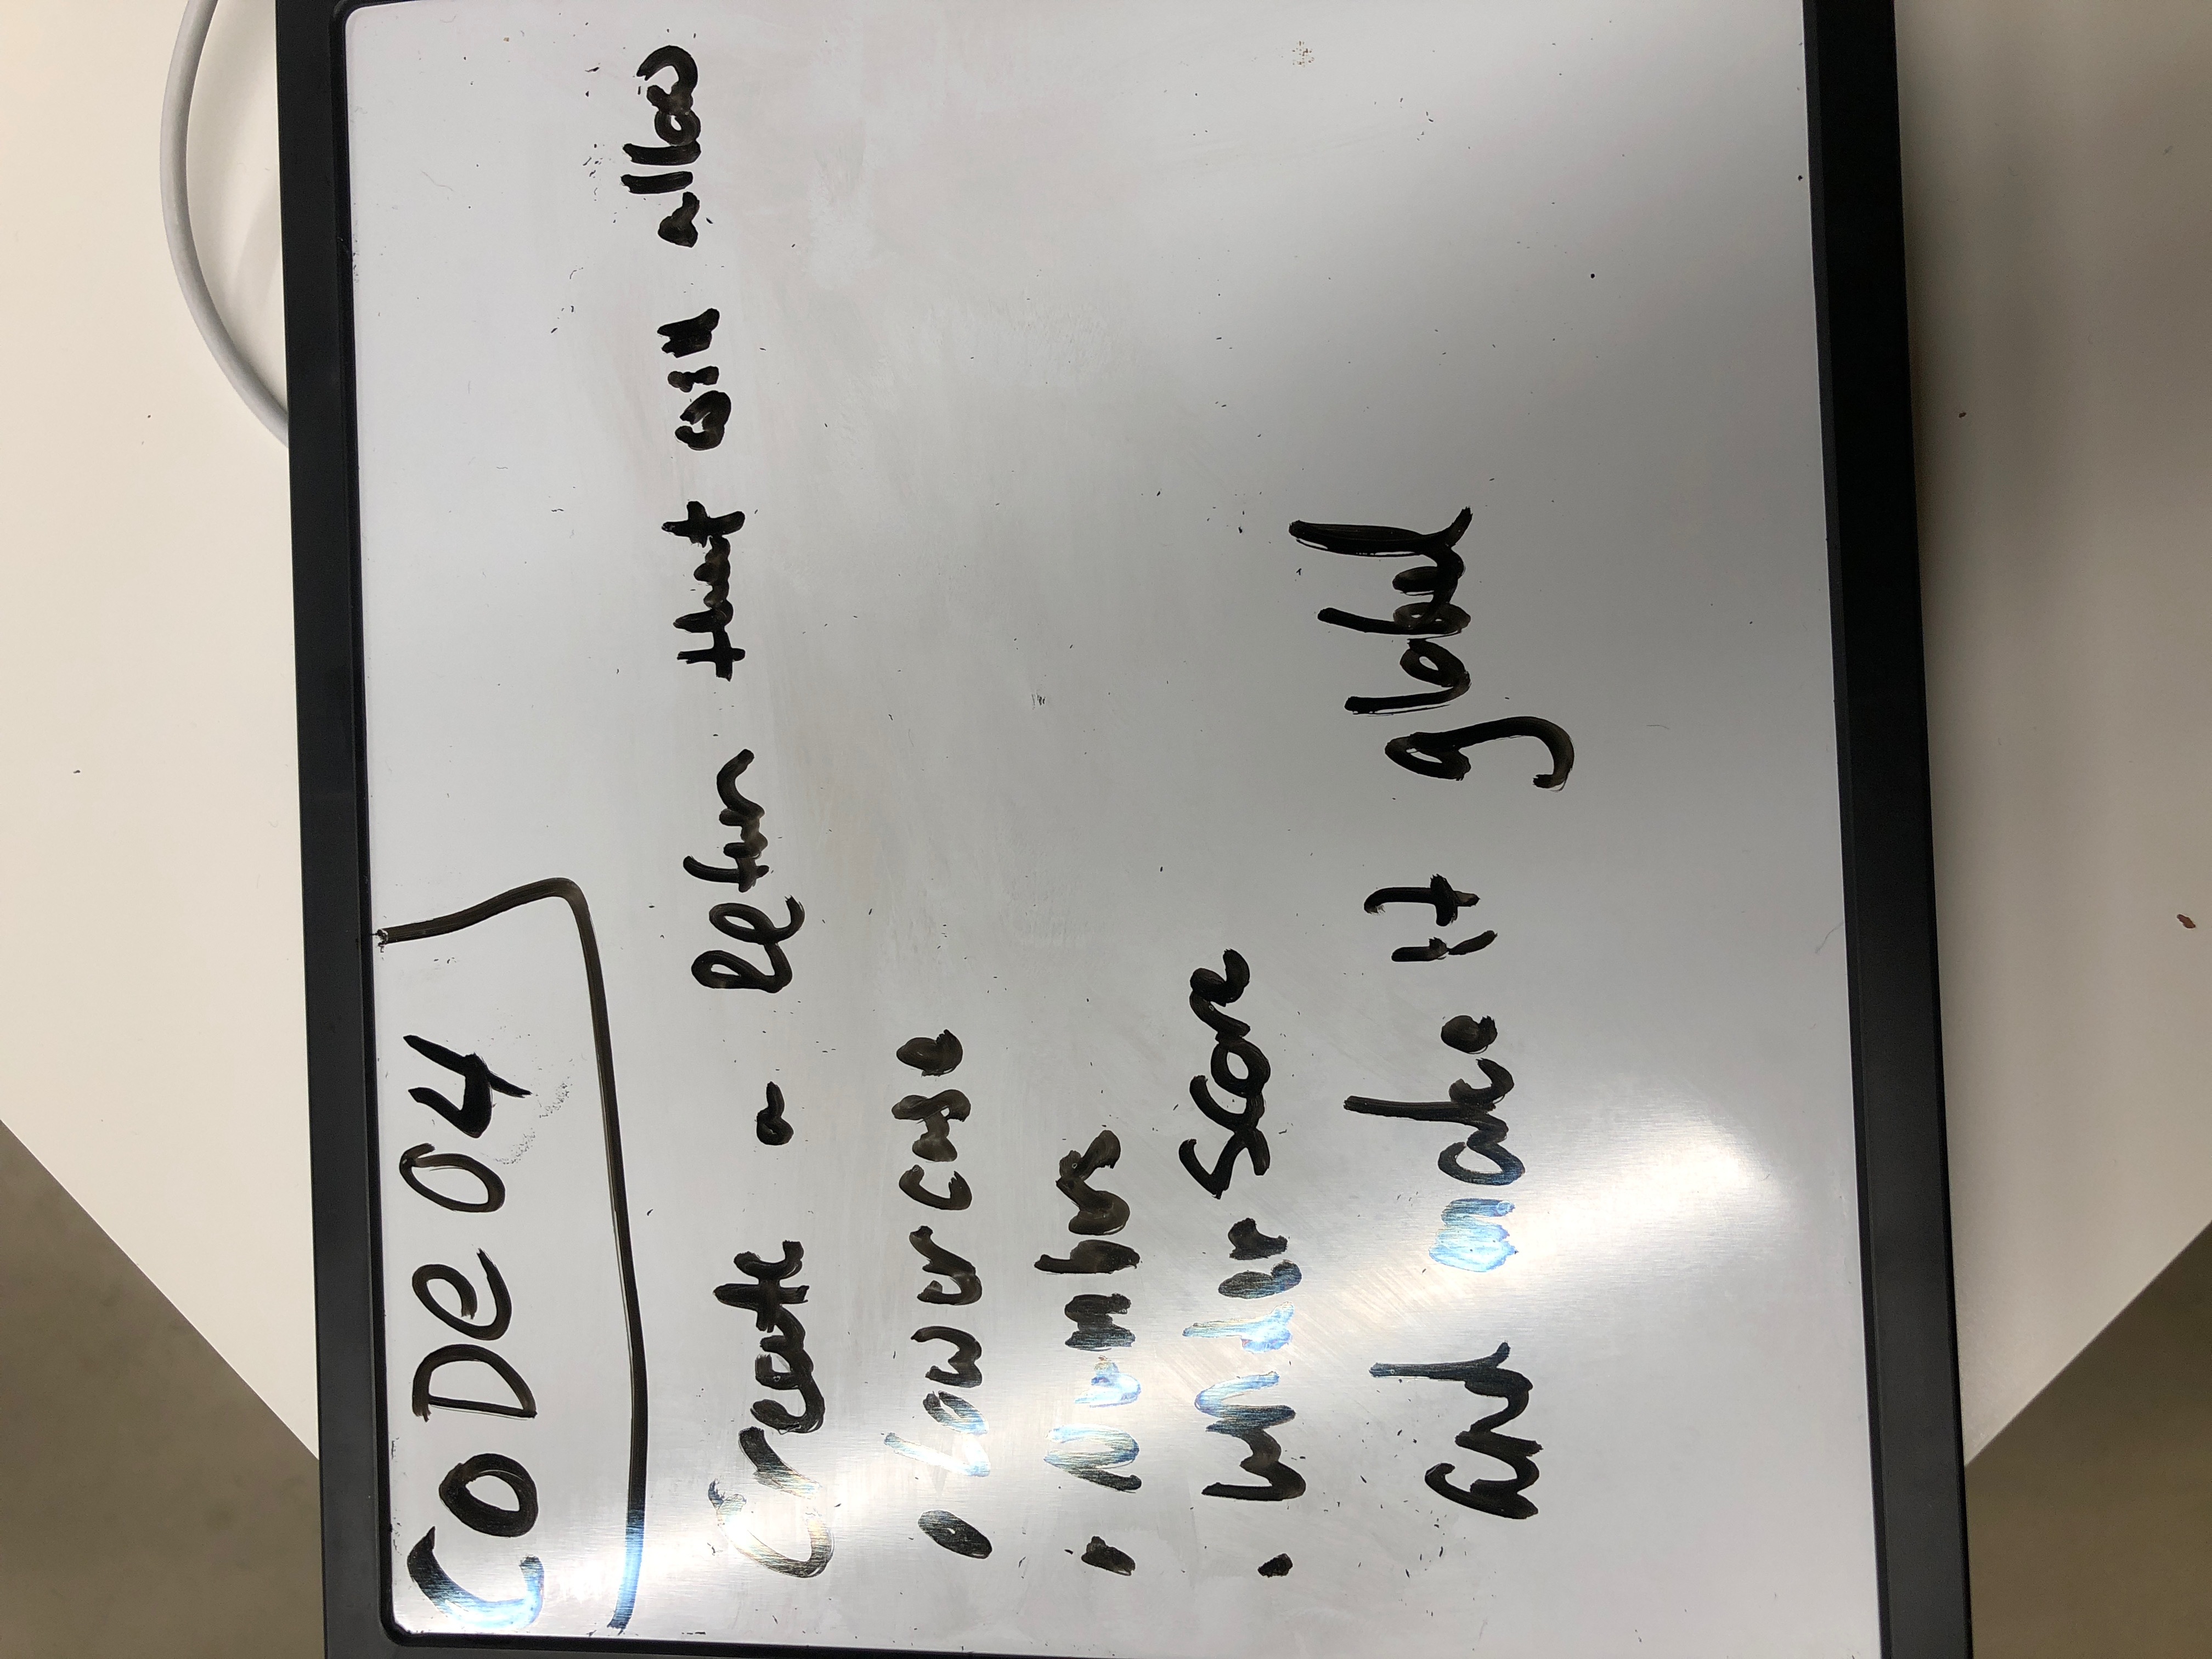 CODe 04
Create a Return that will allow
• Lowercase
• Numbers
• Underscore
and make it global